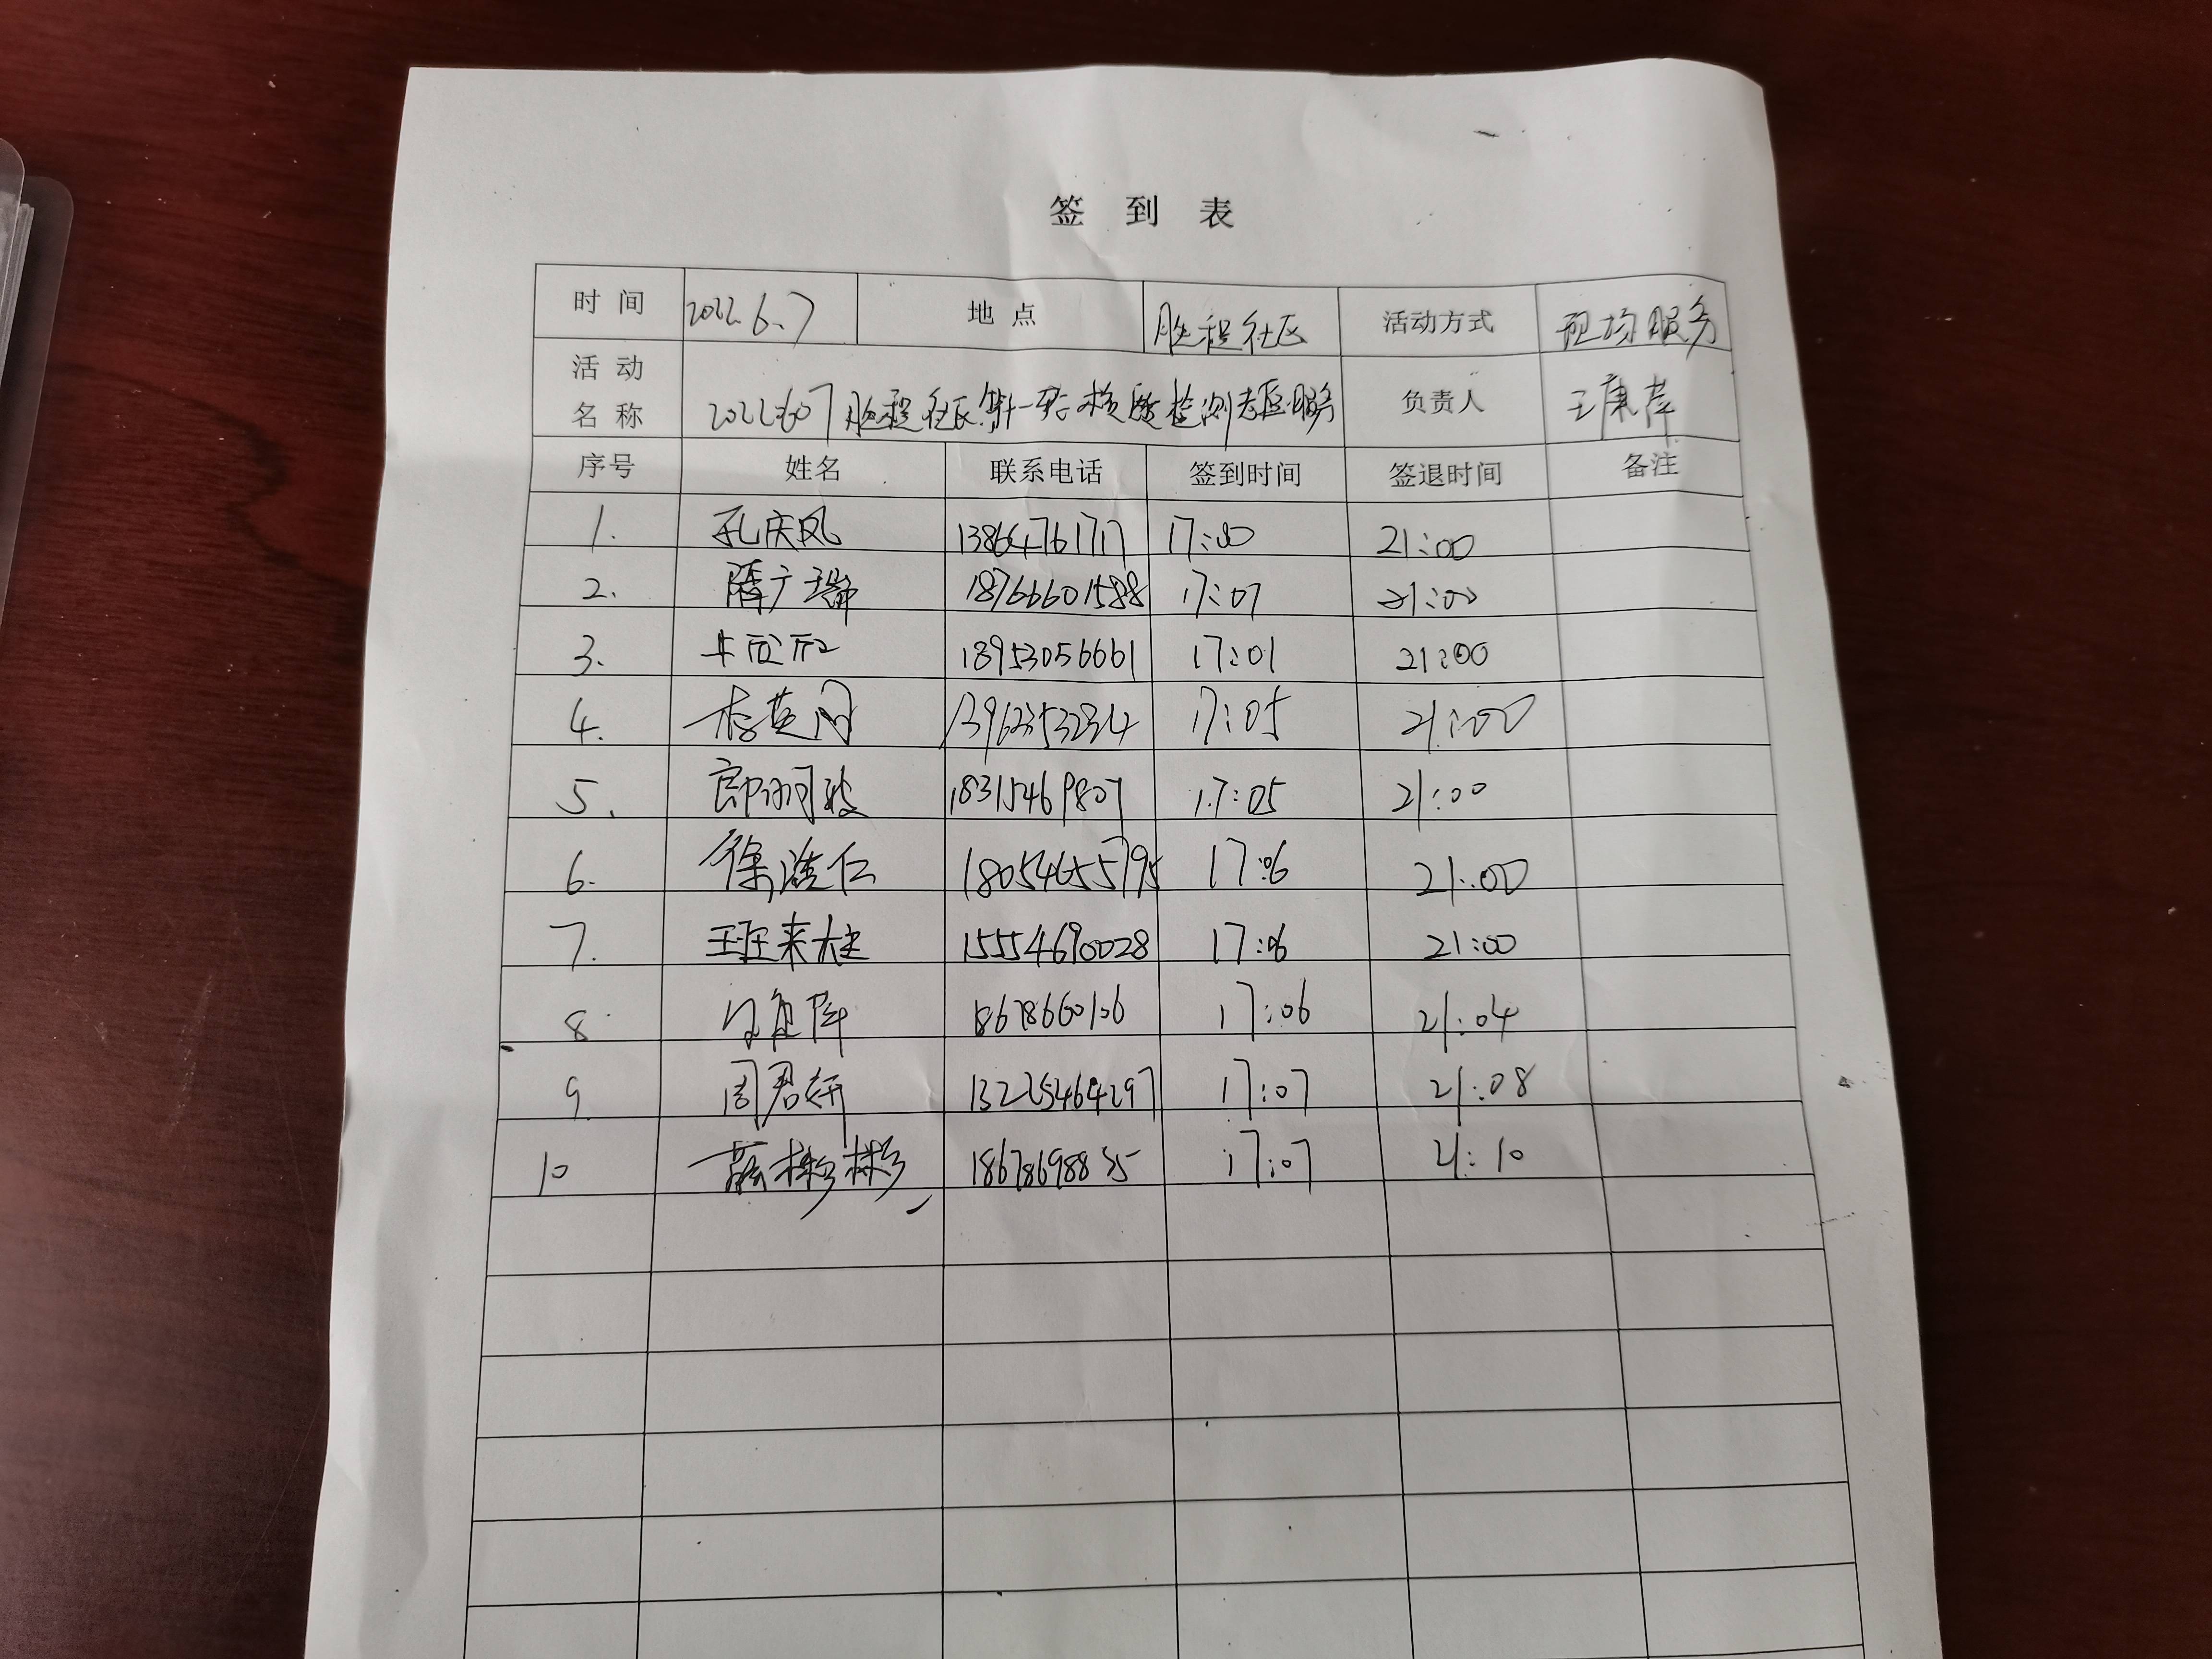 签 到 表
时 间 2022.6.7 地 点 胜程社区 活动方式 现场服务
活 动 名 称 20220607胜程社区第一轮核酸检测志愿服务 负责人 王康萍
序号 姓名 联系电话 签到时间 签退时间 备注
1. 孔庆凤 13864761717 17:00 21:00
2. 隋广瑞 18766601588 17:07 21:00
3. 18953056661 17:01 21:00
4. 李英阁 17:05 21:00
5. 18315469807 17:05 21:00
6. 徐浩仁 18054655795 17:06 21:00
7. 15554690028 17:06 21:00
8 18678660106 17:06 21:04
9. 周君妍 13225464297 17:07 21:08
10 17:07 21:10